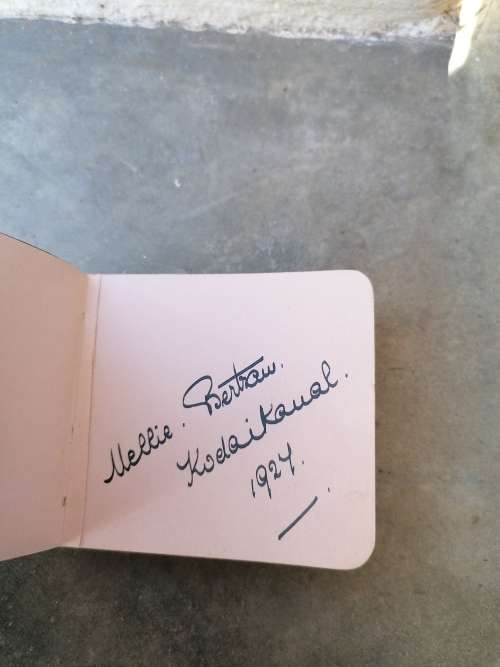 Mellie. Bertram.
Kodaikanal.
1927.